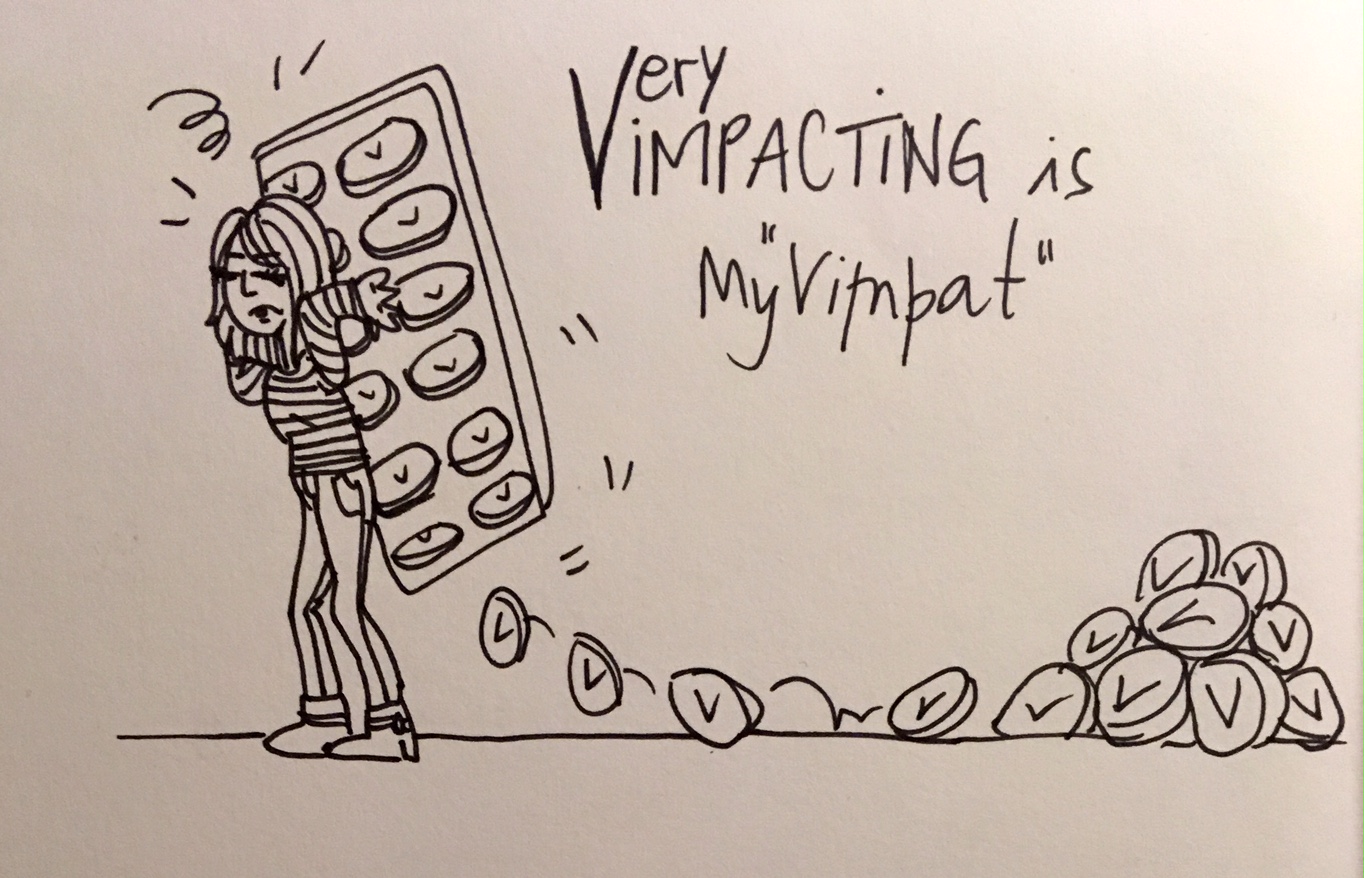 Very
ViMPACTiNG is
My "Vimpat"